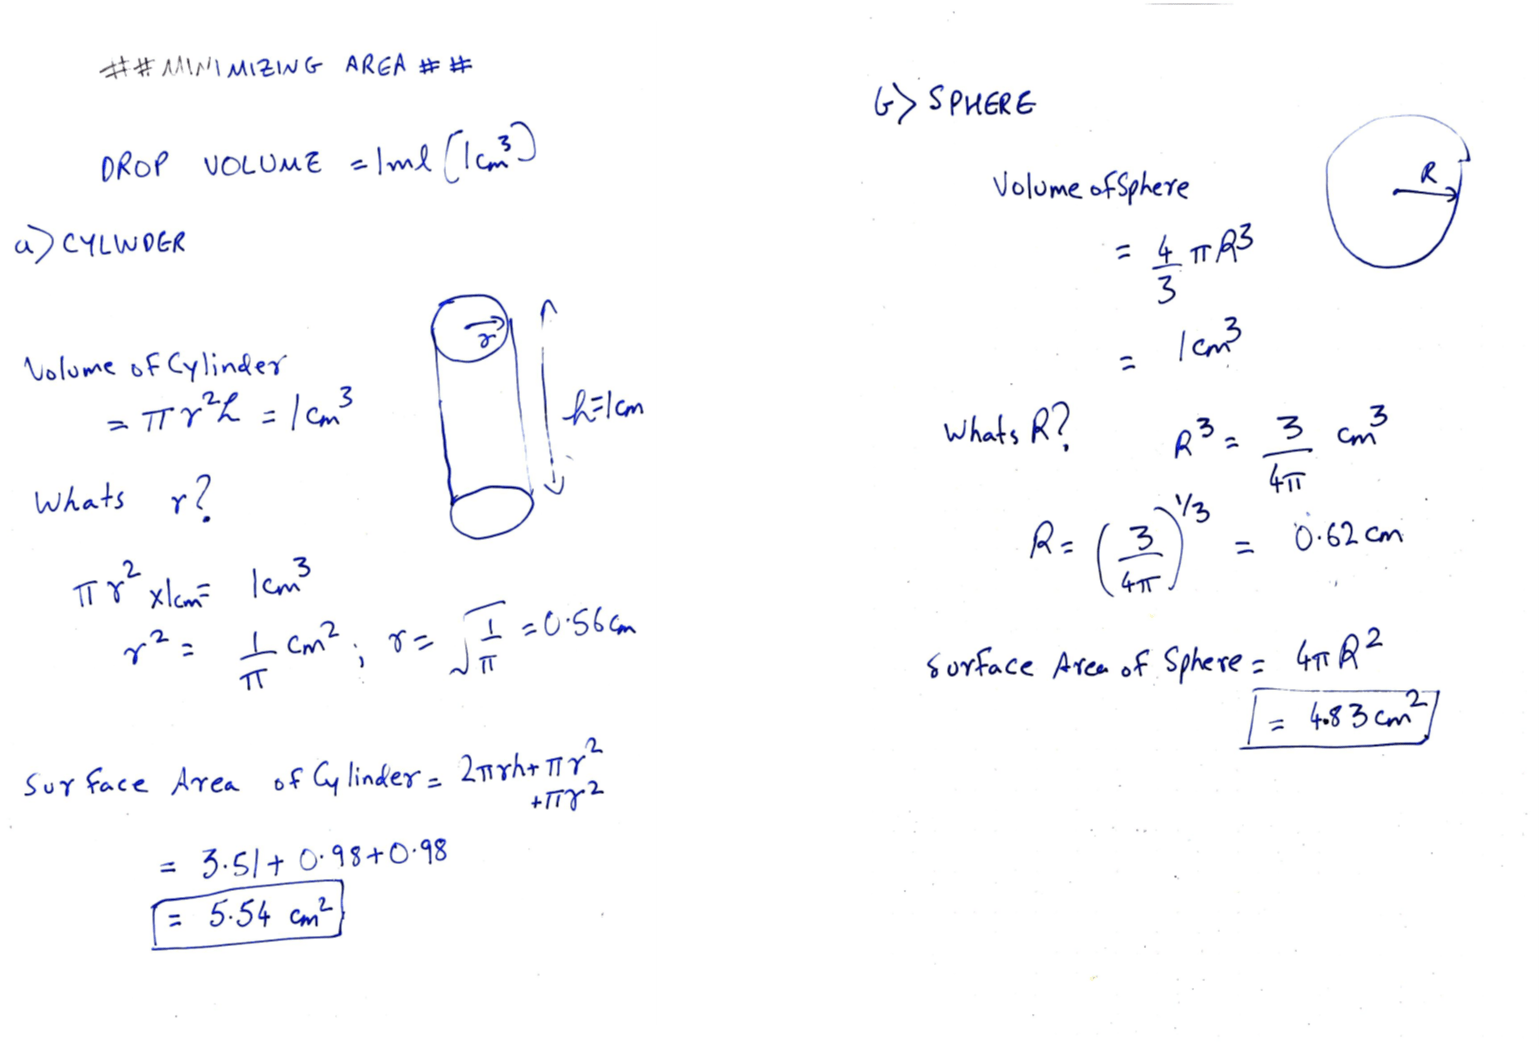 ## MINIMIZING AREA ##
DROP VOLUME = 1ml (1cm³)
a) CYLINDER
r
h=1cm
Volume of Cylinder
= πr²h = 1cm³
Whats r?
πr² x1cm = 1cm³
r² = 1/π cm² ; r = √(1/π) = 0.56cm
Surface Area of Cylinder = 2πrh + πr²
+πr²
= 3.51 + 0.98 + 0.98
= 5.54 cm²
b) SPHERE
R
Volume of Sphere
= 4/3 πR³
= 1cm³
Whats R? R³ = 3/4π cm³
R = (3/4π)^1/3 = 0.62 cm
Surface Area of Sphere = 4πR²
= 4.83 cm²